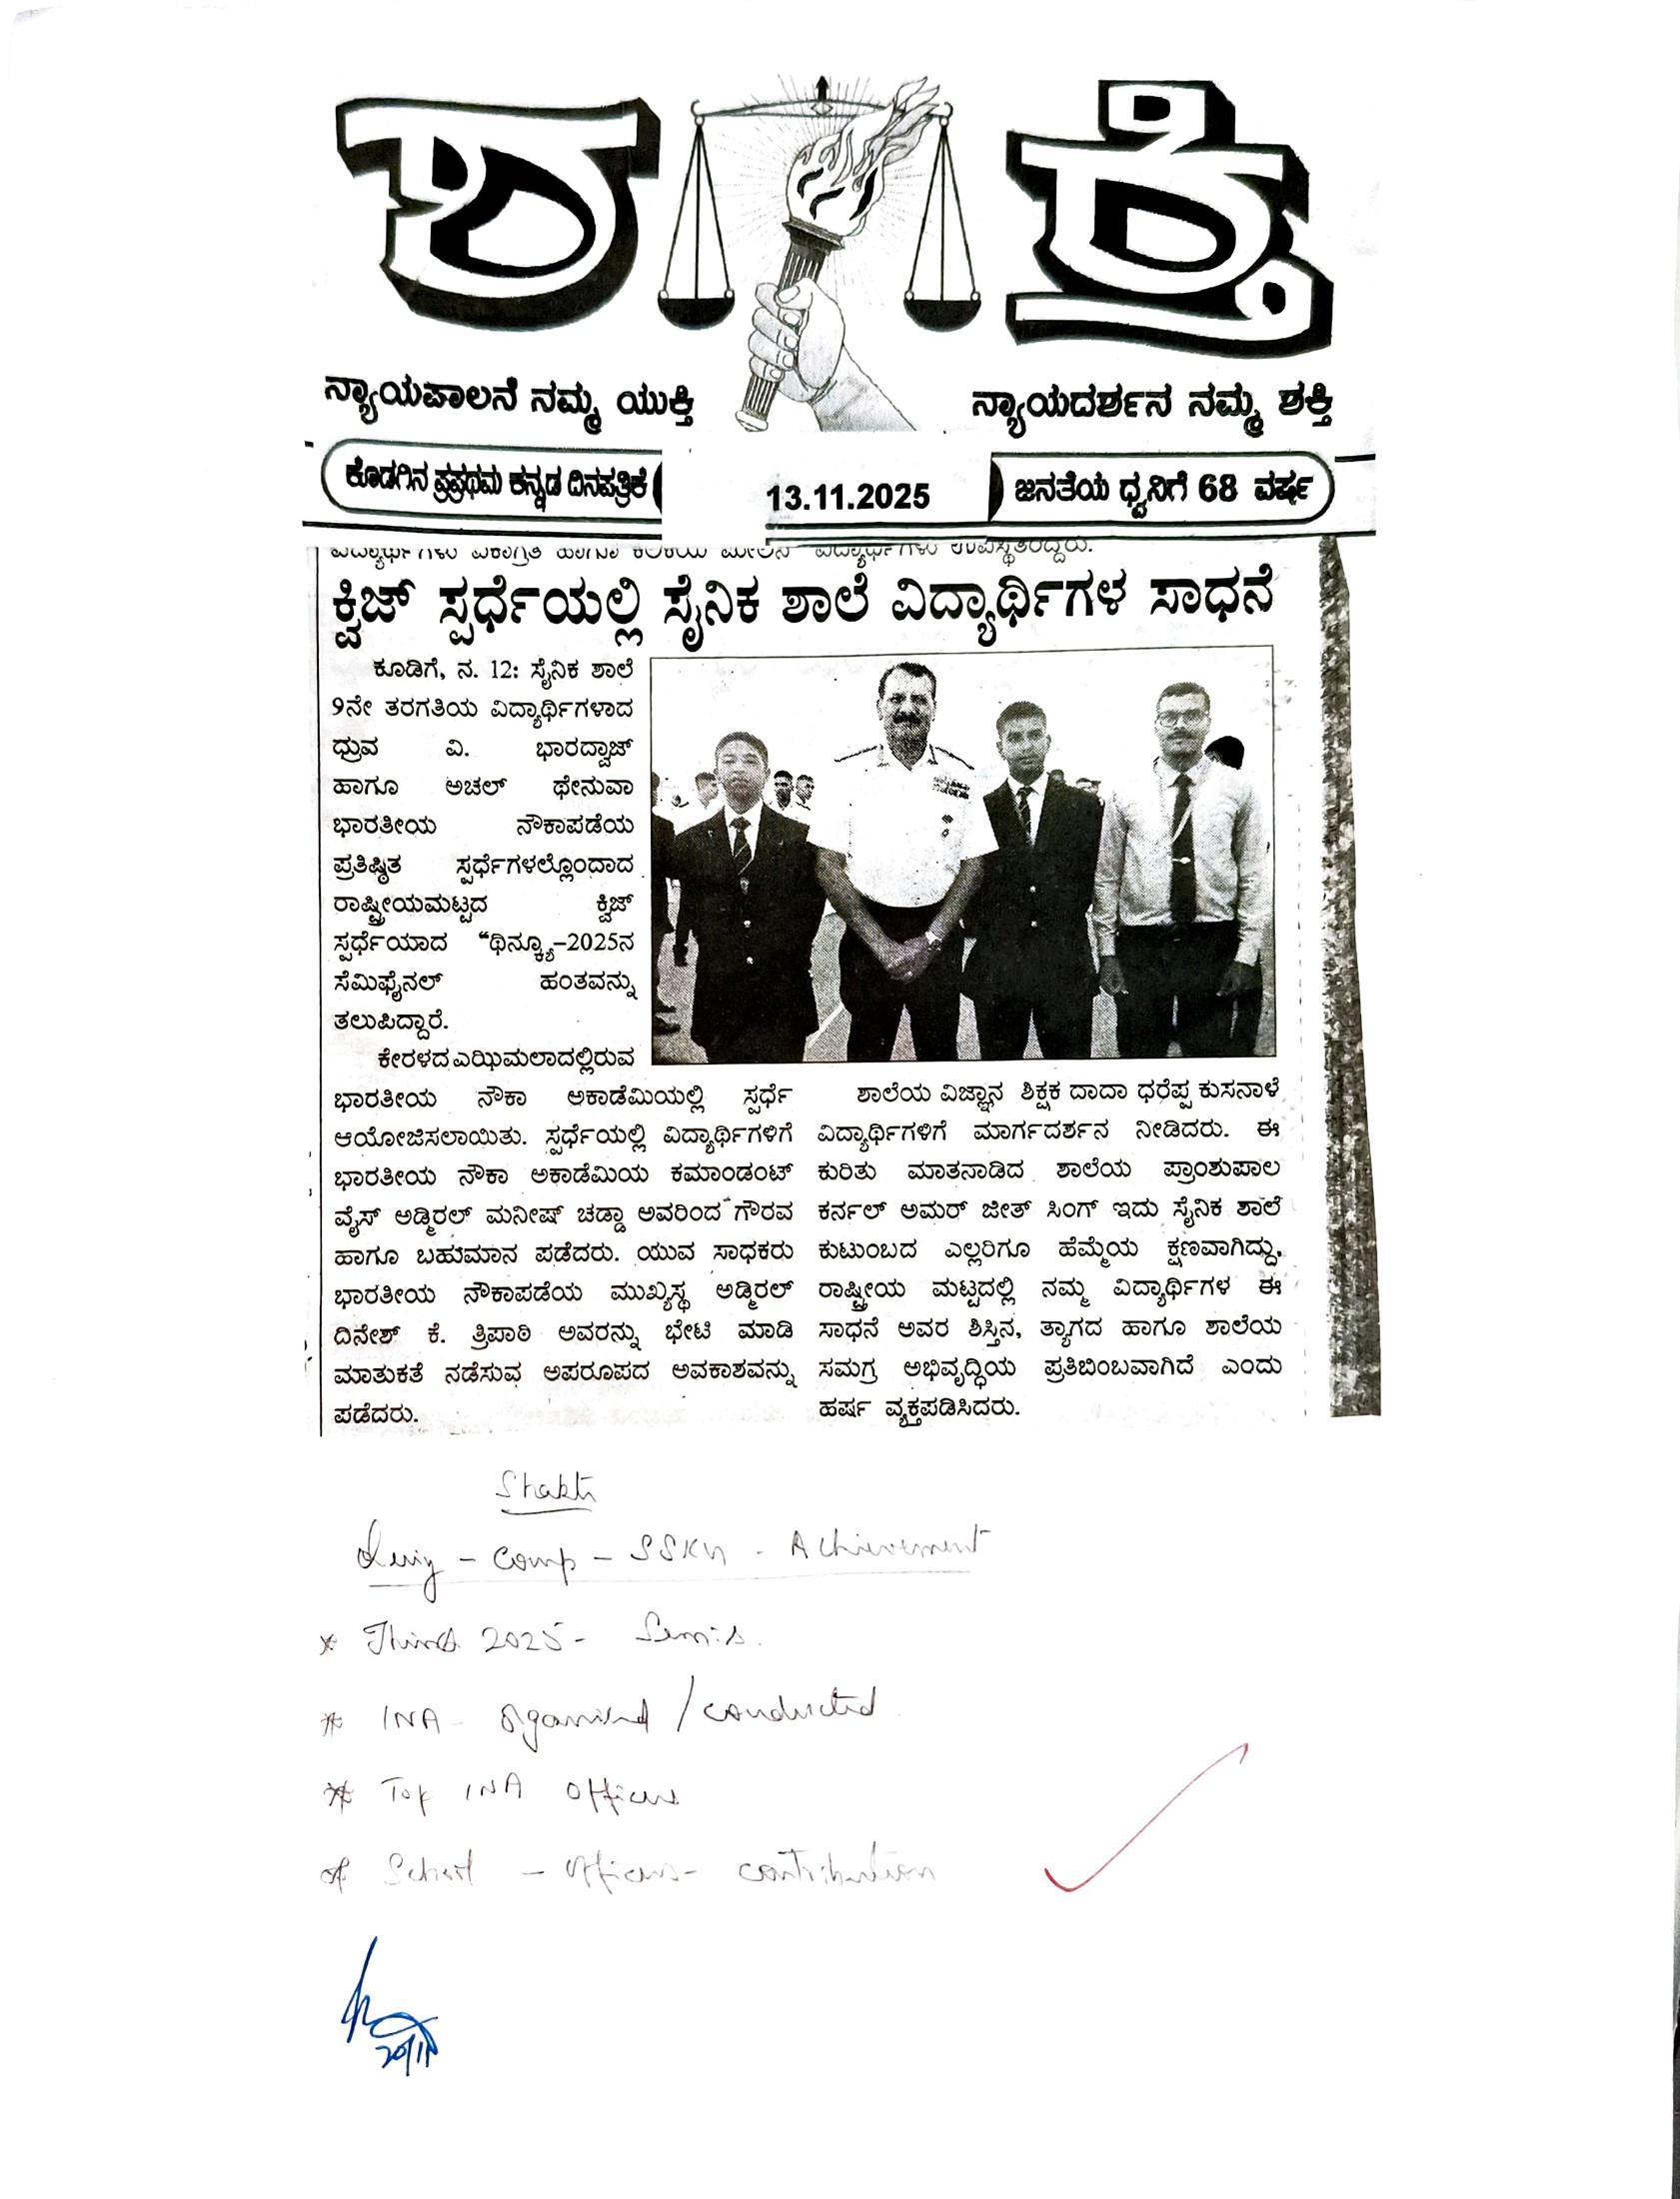 ಶಕ್ತಿ
ನ್ಯಾಯಪಾಲನೆ ನಮ್ಮ ಯುಕ್ತಿ
ನ್ಯಾಯದರ್ಶನ ನಮ್ಮ ಶಕ್ತಿ
ಕೊಡಗಿನ ಪ್ರಪ್ರಥಮ ಕನ್ನಡ ದಿನಪತ್ರಿಕೆ
13.11.2025
ಜನತೆಯ ಧ್ವನಿಗೆ 68 ವರ್ಷ
ಕ್ವಿಜ್ ಸ್ಪರ್ಧೆಯಲ್ಲಿ ಸೈನಿಕ ಶಾಲೆ ವಿದ್ಯಾರ್ಥಿಗಳ ಸಾಧನೆ
ಕೂಡಿಗೆ, ನ. 12: ಸೈನಿಕ ಶಾಲೆ
9ನೇ ತರಗತಿಯ ವಿದ್ಯಾರ್ಥಿಗಳಾದ
ಧ್ರುವ ವಿ. ಭಾರದ್ವಾಜ್
ಹಾಗೂ ಅಚಲ್ ಥೇನುವಾ
ಭಾರತೀಯ ನೌಕಾಪಡೆಯ
ಪ್ರತಿಷ್ಠಿತ ಸ್ಪರ್ಧೆಗಳಲ್ಲೊಂದಾದ
ರಾಷ್ಟ್ರೀಯಮಟ್ಟದ ಕ್ವಿಜ್
ಸ್ಪರ್ಧೆಯಾದ “ಥಿನ್ಕ್ಯೂ–2025ನ
ಸೆಮಿಫೈನಲ್ ಹಂತವನ್ನು
ತಲುಪಿದ್ದಾರೆ.
ಕೇರಳದ ಎಝಿಮಲಾದಲ್ಲಿರುವ
ಭಾರತೀಯ ನೌಕಾ ಅಕಾಡೆಮಿಯಲ್ಲಿ ಸ್ಪರ್ಧೆ
ಆಯೋಜಿಸಲಾಯಿತು. ಸ್ಪರ್ಧೆಯಲ್ಲಿ ವಿದ್ಯಾರ್ಥಿಗಳಿಗೆ
ಭಾರತೀಯ ನೌಕಾ ಅಕಾಡೆಮಿಯ ಕಮಾಂಡಂಟ್
ವೈಸ್ ಅಡ್ಮಿರಲ್ ಮನೀಷ್ ಚಡ್ಡಾ ಅವರಿಂದ ಗೌರವ
ಹಾಗೂ ಬಹುಮಾನ ಪಡೆದರು. ಯುವ ಸಾಧಕರು
ಭಾರತೀಯ ನೌಕಾಪಡೆಯ ಮುಖ್ಯಸ್ಥ ಅಡ್ಮಿರಲ್
ದಿನೇಶ್ ಕೆ. ತ್ರಿಪಾಠಿ ಅವರನ್ನು ಭೇಟಿ ಮಾಡಿ
ಮಾತುಕತೆ ನಡೆಸುವ ಅಪರೂಪದ ಅವಕಾಶವನ್ನು
ಪಡೆದರು.
ಶಾಲೆಯ ವಿಜ್ಞಾನ ಶಿಕ್ಷಕ ದಾದಾ ಧರೆಪ್ಪ ಕುಸನಾಳೆ
ವಿದ್ಯಾರ್ಥಿಗಳಿಗೆ ಮಾರ್ಗದರ್ಶನ ನೀಡಿದರು. ಈ
ಕುರಿತು ಮಾತನಾಡಿದ ಶಾಲೆಯ ಪ್ರಾಂಶುಪಾಲ
ಕರ್ನಲ್ ಅಮರ್ ಜೀತ್ ಸಿಂಗ್ ಇದು ಸೈನಿಕ ಶಾಲೆ
ಕುಟುಂಬದ ಎಲ್ಲರಿಗೂ ಹೆಮ್ಮೆಯ ಕ್ಷಣವಾಗಿದ್ದು,
ರಾಷ್ಟ್ರೀಯ ಮಟ್ಟದಲ್ಲಿ ನಮ್ಮ ವಿದ್ಯಾರ್ಥಿಗಳ ಈ
ಸಾಧನೆ ಅವರ ಶಿಸ್ತಿನ, ತ್ಯಾಗದ ಹಾಗೂ ಶಾಲೆಯ
ಸಮಗ್ರ ಅಭಿವೃದ್ಧಿಯ ಪ್ರತಿಬಿಂಬವಾಗಿದೆ ಎಂದು
ಹರ್ಷ ವ್ಯಕ್ತಪಡಿಸಿದರು.
Shakti
Quiz - Comp - SSKN - Achievement
* 2025 - Semis.
* INA - Organised / conducted
* Top INA Officers
* School - Officers - contribution
20/11